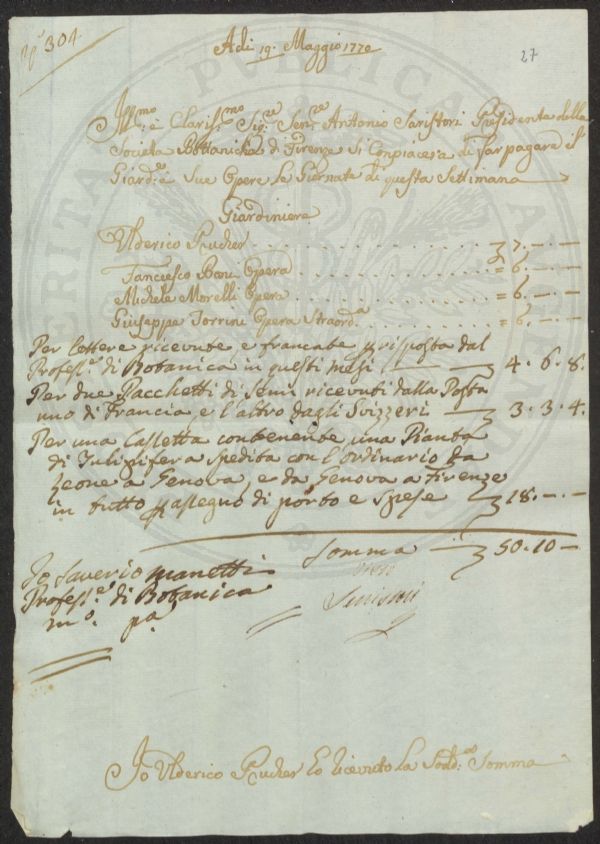 N.º 304.
27
Adi 19. Maggio 1770
Ill:mo e Claris:mo Sig:re Sen:re Antonio Seristori Presidente della
Società Bottanicha di Firenze Si Conpiacera di far pagare il
Giard:e e Sue Opere le Giornate di questa Settimana
Giardiniere
Ulderico Prucher . . . . . . . . . . . . 7. — . —
Fancesco Boni Opera . . . . . . . . . . = 6. — . —
Michele Morelli Opera . . . . . . . . . = 6. — . —
Giuseppe Torrini Opera Straord:a . . . = 6. — . —
Per lettere ricevute, e francate p risposta dal
Profess:e di Botanica in questi mesi — — 4. 6. 8.
Per due Pacchetti di Semi ricevuti dalla Posta
uno di Francia e l'altro dagli Svizzeri — 3. 3. 4.
Per una Cassetta contenente una Pianta
di Tulipifera spedita con l'ordinario da
Leone a Genova, e da Genova a Firenze
in tutto passegno di porto e spese 18. — . —
Somma — 50. 10 —
Io Saverio Manetti
Profess:e di Botanica
m:o p:a
Seristori
Io Ulderico Prucher Ho Ricevuto La Sodd:a Somma